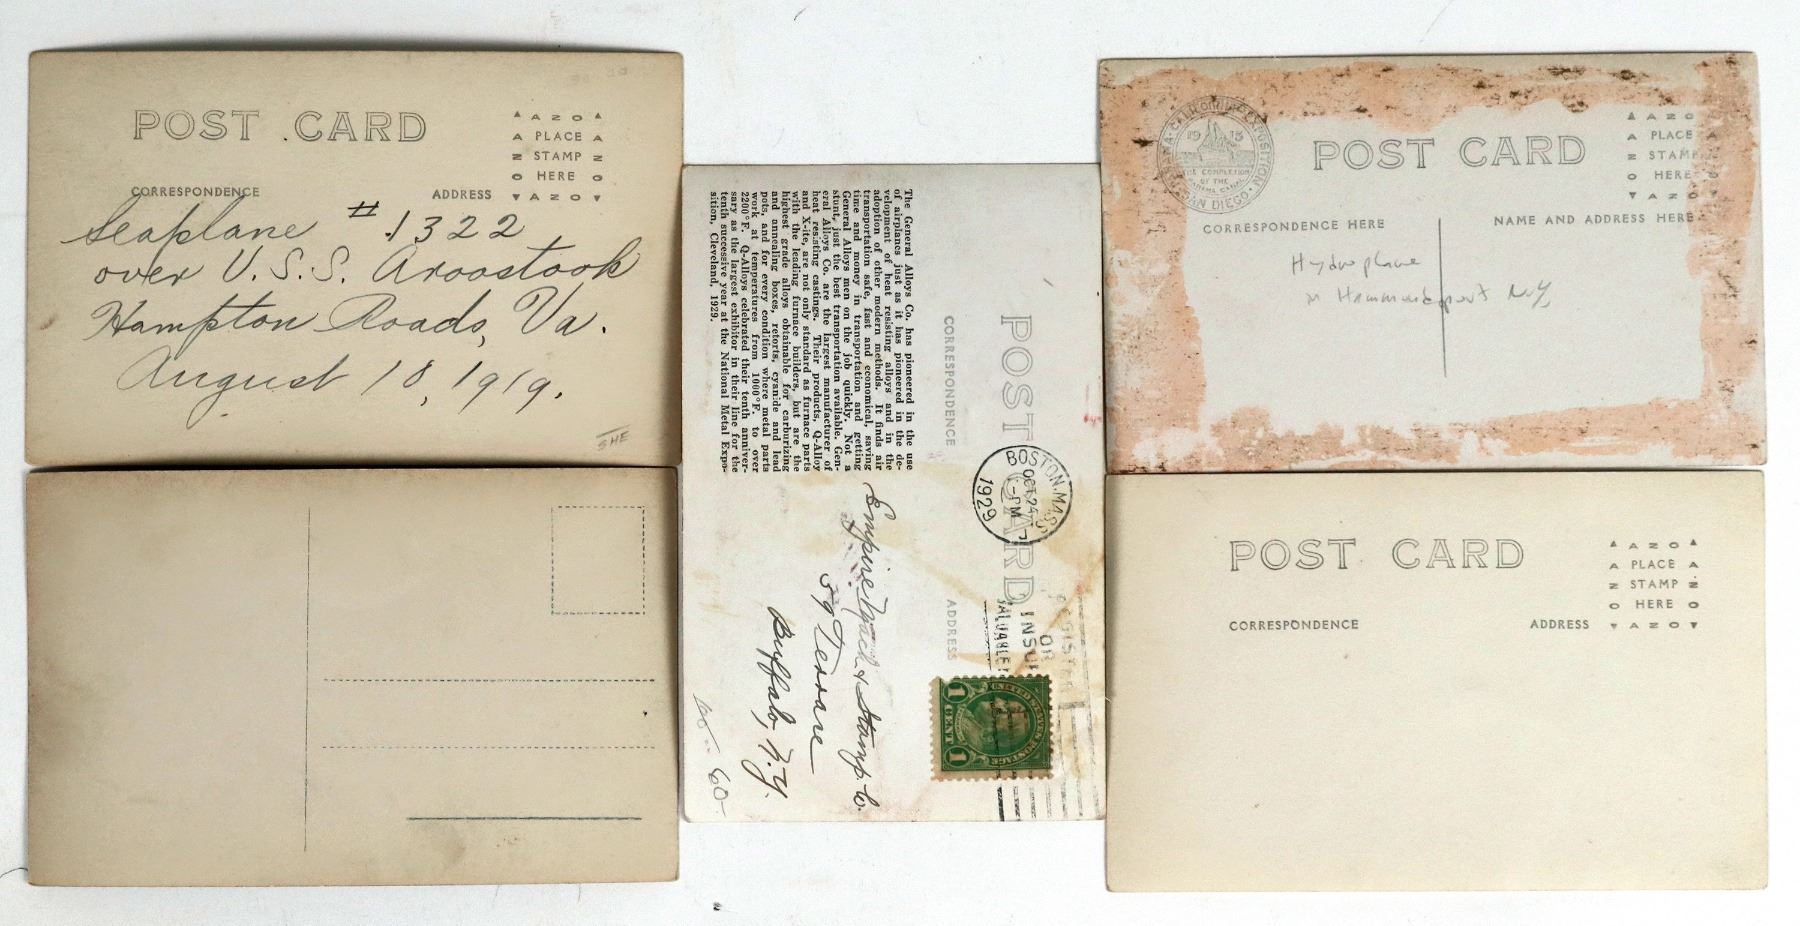 POST CARD
AZO
PLACE
STAMP
HERE
AZO
CORRESPONDENCE
ADDRESS
Seaplane #1322
over U.S.S. Aroostook
Hampton Roads, Va.
August 18, 1919.
The General Alloys Co. has pioneered in the use
of airplanes just as it has pioneered in the de-
velopment of heat resisting alloys and in the
adoption of other modern methods. It finds air
transportation safe, fast and economical, saving
time and money in transportation and getting
General Alloys men on the job quickly. Not a
stunt, just the best transportation available. Gen-
eral Alloys Co. are the largest manufacturers of
heat resisting castings. Their products, Q-Alloy
and X-ite, are not only standard as furnace parts
with the leading furnace builders, but are the
highest grade alloys obtainable for carburizing
and annealing boxes, retorts, cyanide and lead
pots, and for every condition where metal parts
work at temperatures from 1000°F. to over
2200°F. Q-Alloys celebrated their tenth anniver-
sary as the largest exhibitor in their line for the
tenth successive year at the National Metal Expo-
sition, Cleveland, 1929.
POST CARD
CORRESPONDENCE
ADDRESS
BOSTON, MASS
OCT 24
1-PM
1929
OR INSURE
VALUABLE
UNITED STATES POSTAGE
1 CENT 1
Empire & Stamp. Co.
59 Terrace
Buffalo, N.Y.
60-
1915
THE COMPLETION
OF THE
PANAMA CANAL
PANAMA-CALIFORNIA EXPOSITION
SAN DIEGO
POST CARD
AZO
PLACE
STAMP
HERE
AZO
CORRESPONDENCE HERE
NAME AND ADDRESS HERE
Hydroplane
Hammondsport N.Y.
POST CARD
AZO
PLACE
STAMP
HERE
AZO
CORRESPONDENCE
ADDRESS